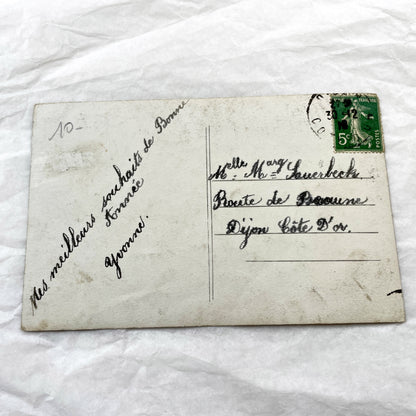 10-
Mes meilleurs souhaits de Bonne
Année
Yvonne.
Melle Marg= Sauerbeck
Route de Beaune
Dijon Côte D'or.
5c